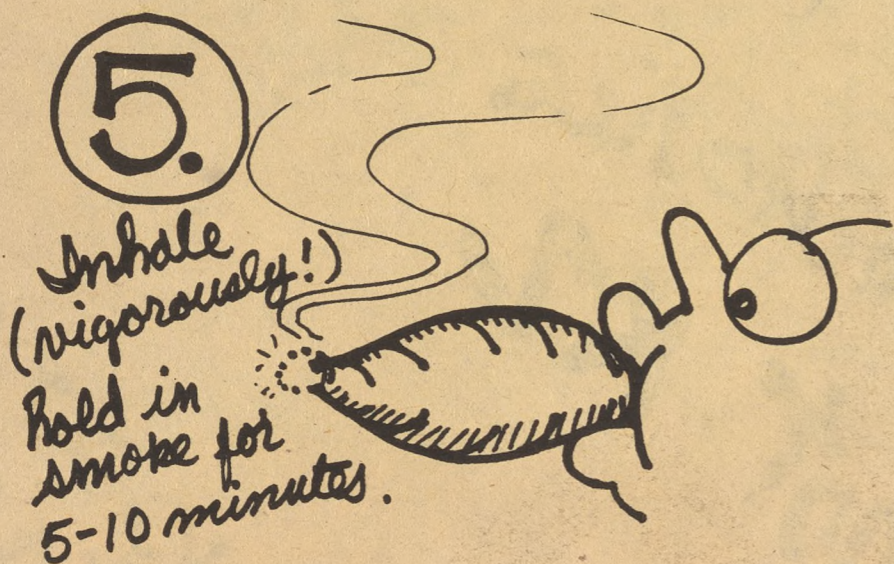 5.
Inhale
(vigorously!)
hold in
smoke for
5-10 minutes.